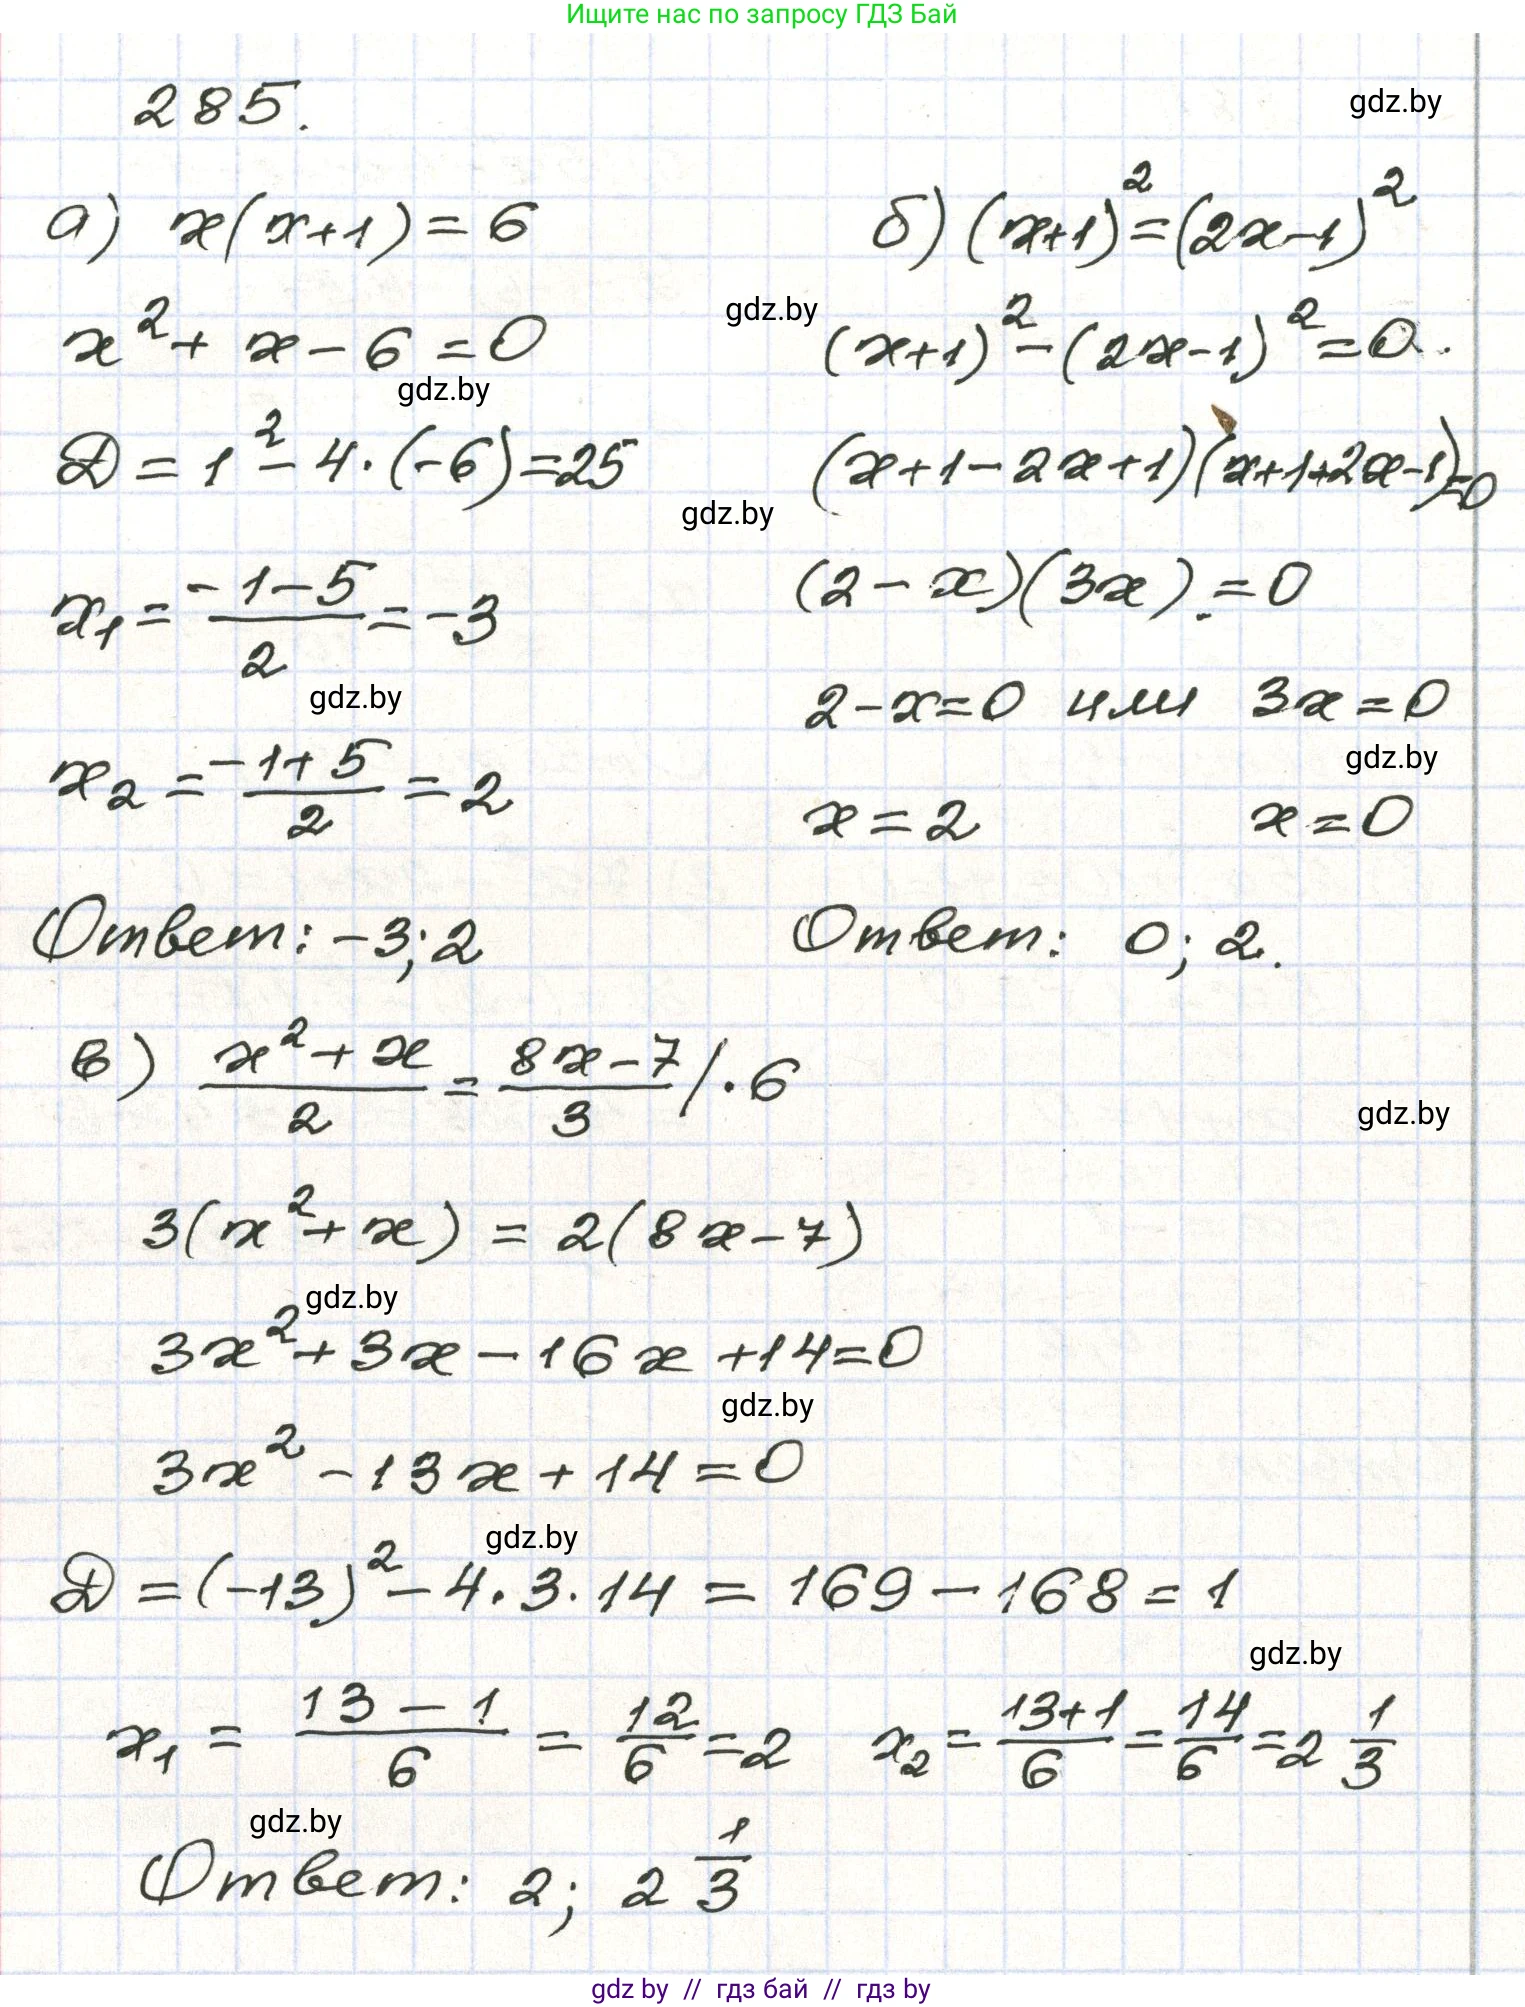 Ищите нас по запросу ГДЗ Бай
285.
gdz.by
а) x(x+1) = 6
x² + x - 6 = 0
gdz.by
D = 1² - 4 · (-6) = 25
gdz.by
x₁ = (-1-5)/2 = -3
gdz.by
x₂ = (-1+5)/2 = 2
Ответ: -3; 2
б) (x+1)² = (2x-1)²
gdz.by
(x+1)² - (2x-1)² = 0.
(x+1-2x+1)(x+1+2x-1)=0
(2-x)(3x) = 0
2-x=0 или 3x=0
gdz.by
x=2 x=0
Ответ: 0; 2.
в) (x²+x)/2 = (8x-7)/3 /·6
gdz.by
3(x²+x) = 2(8x-7)
gdz.by
3x²+3x-16x+14=0
gdz.by
3x²-13x+14=0
gdz.by
D = (-13)² - 4·3·14 = 169-168 = 1
gdz.by
x₁ = (13-1)/6 = 12/6 = 2 x₂ = (13+1)/6 = 14/6 = 2 1/3
gdz.by
Ответ: 2; 2 1/3
gdz by // гдз бай // гдз by